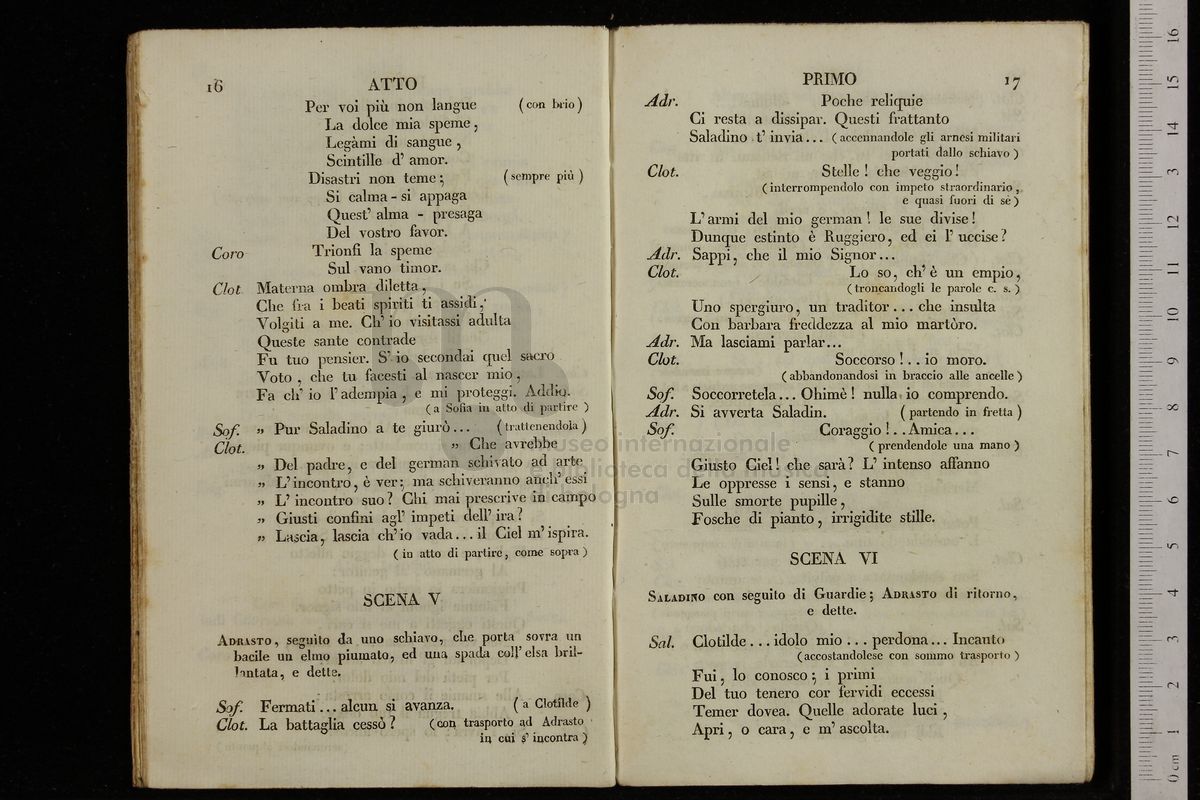 16 ATTO
Per voi più non langue (con brio)
La dolce mia speme,
Legàmi di sangue,
Scintille d' amor.
Disastri non teme; (sempre più)
Si calma - si appaga
Quest' alma - presaga
Del vostro favor.
Coro Trionfi la speme
Sul vano timor.
Clot. Materna ombra diletta,
Che fra i beati spiriti ti assidi,
Volgiti a me. Ch' io visitassi adulta
Queste sante contrade
Fu tuo pensier. S' io secondai quel sacro
Voto, che tu facesti al nascer mio,
Fa ch' io l' adempia, e mi proteggi. Addio.
(a Sofia in atto di partire)
Sof. „ Pur Saladino a te giurò... (trattenendola)
Clot. „ Che avrebbe
„ Del padre, e del german schivato ad arte
„ L' incontro, è ver; ma schiveranno anch' essi
„ L' incontro suo? Chi mai prescrive in campo
„ Giusti confini agl' impeti dell' ira?
„ Lascia, lascia ch' io vada... il Ciel m' ispira.
(in atto di partire, come sopra)
SCENA V
ADRASTO, seguito da uno schiavo, che porta sovra un
bacile un elmo piumato, ed una spada coll' elsa bril-
lantata, e dette.
Sof. Fermati... alcun si avanza. (a Clotilde)
Clot. La battaglia cessò? (con trasporto ad Adrasto
in cui s' incontra)
PRIMO 17
Adr. Poche reliquie
Ci resta a dissipar. Questi frattanto
Saladino t' invia... (accennandole gli arnesi militari
portati dallo schiavo)
Clot. Stelle! che veggio!
(interrompendolo con impeto straordinario,
e quasi fuori di sé)
L' armi del mio german! le sue divise!
Dunque estinto è Ruggiero, ed ei l' uccise?
Adr. Sappi, che il mio Signor...
Clot. Lo so, ch' è un empio,
(troncandogli le parole c. s.)
Uno spergiuro, un traditor... che insulta
Con barbara freddezza al mio martòro.
Adr. Ma lasciami parlar...
Clot. Soccorso!.. io moro.
(abbandonandosi in braccio alle ancelle)
Sof. Soccorretela... Ohimè! nulla io comprendo.
Adr. Si avverta Saladin. (partendo in fretta)
Sof. Coraggio!.. Amica...
(prendendole una mano)
Giusto Ciel! che sarà? L' intenso affanno
Le oppresse i sensi, e stanno
Sulle smorte pupille,
Fosche di pianto, irrigidite stille.
SCENA VI
SALADINO con seguito di Guardie; ADRASTO di ritorno,
e dette.
Sal. Clotilde... idolo mio... perdona... Incauto
(accostandolese con sommo trasporto)
Fui, lo conosco; i primi
Del tuo tenero cor fervidi eccessi
Temer dovea. Quelle adorate luci,
Apri, o cara, e m' ascolta.
museo internazionale
e biblioteca della musica
di bologna
0 cm 1 2 3 4 5 6 7 8 9 10 11 12 13 14 15 16